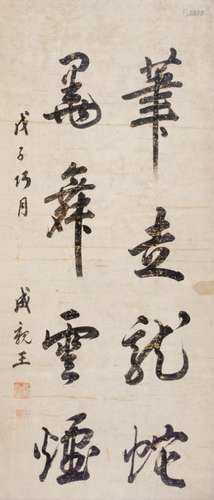 筆走龍蛇
墨舞雲煙
戊子月
成親王